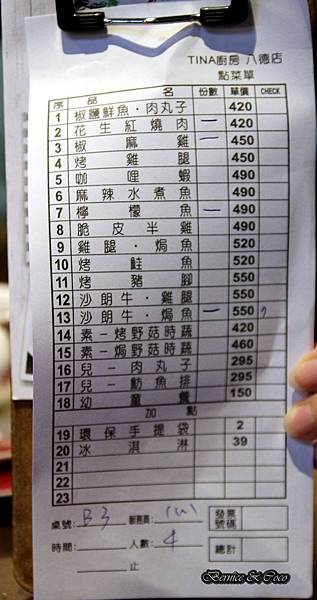 TINA廚房 八德店
點菜單
序 品 名 份數 單價 CHECK
1 椒鹽鮮魚·肉丸子 420
2 花生紅燒肉 一 420
3 椒麻雞 一 450
4 烤雞腿 450
5 咖哩蝦 490
6 麻辣水煮魚 490
7 檸檬魚 一 490
8 脆皮半雞 490
9 雞腿·焗魚 520
10 烤鮭魚 520
11 烤豬腳 550
12 沙朗牛·雞腿 550
13 沙朗牛·焗魚 一 550
14 素-烤野菇時蔬 420
15 素-焗野菇時蔬 460
16 兒-肉丸子 295
17 兒-魴魚排 295
18 幼童餐 150
加點
19 環保手提袋 2
20 冰淇淋 39
21
22
23
桌號: B3 服務員: 發票號碼
時間: 人數: 4 總計
止
Bernice & Coco